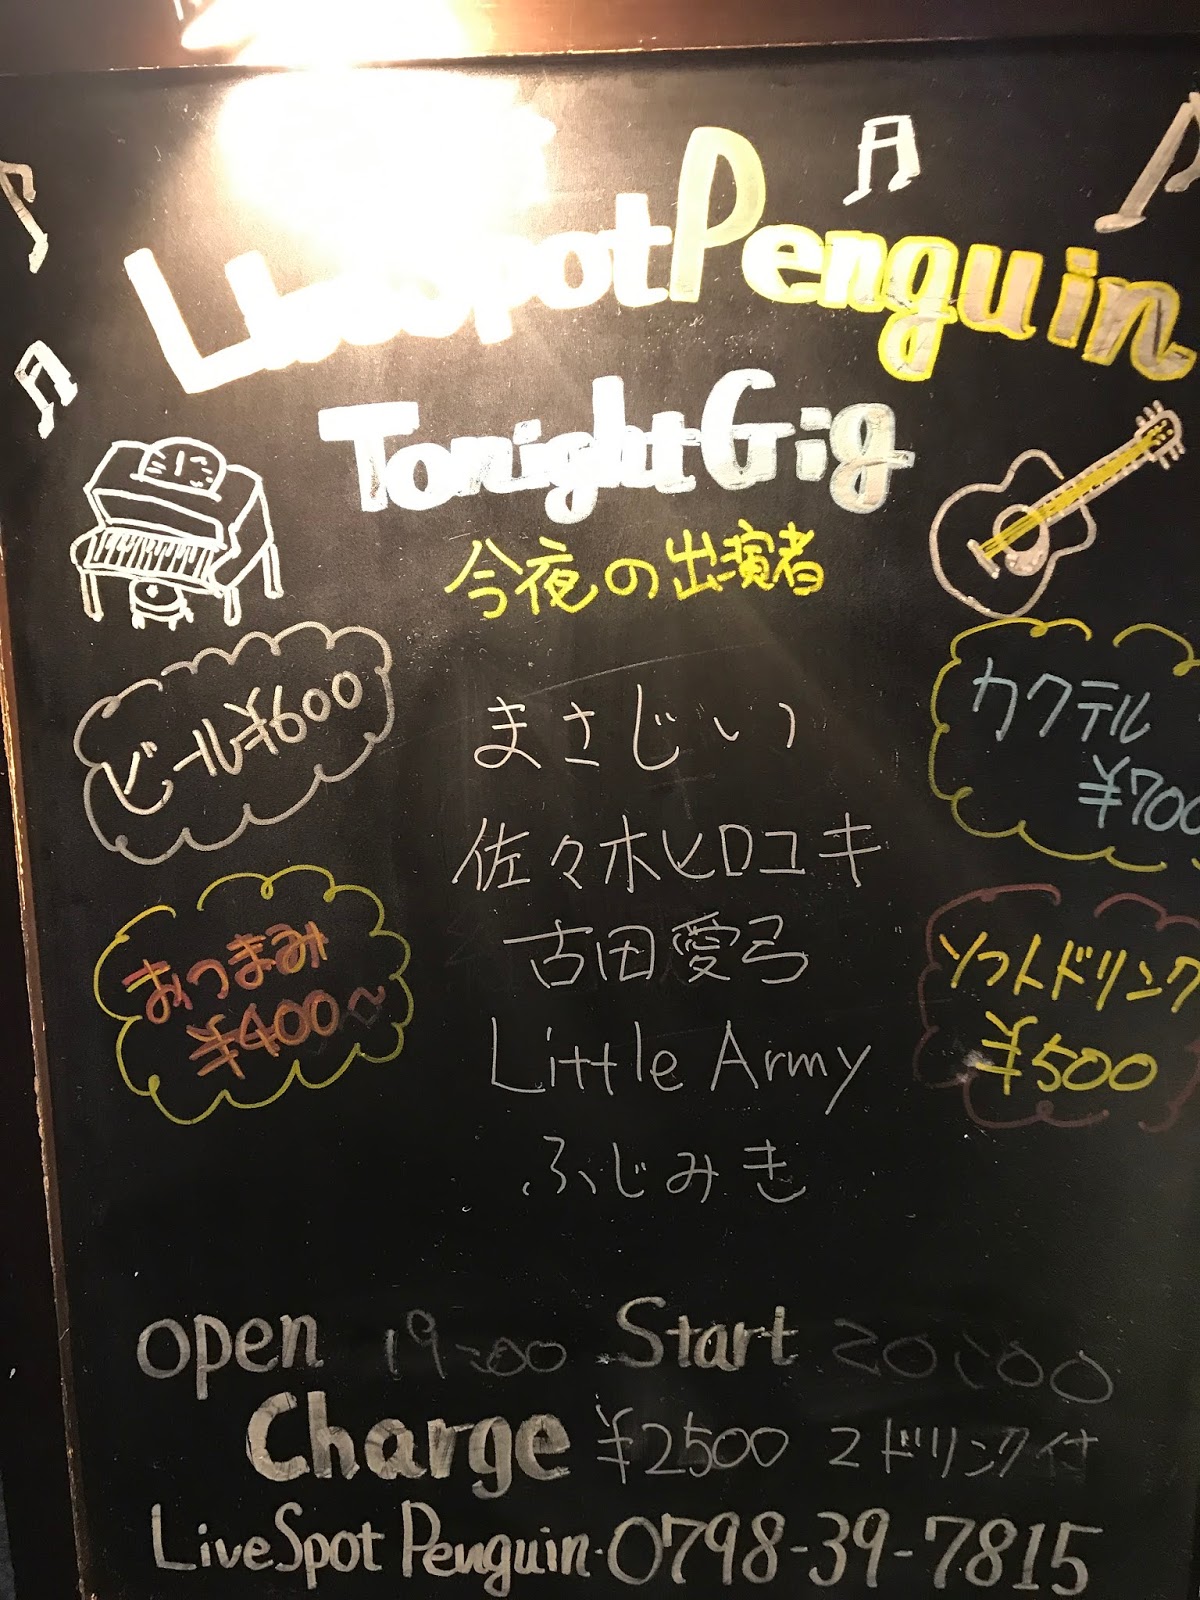 LiveSpot Penguin
Tonight Gig
今夜の出演者
ビール¥600
カクテル
¥700
おつまみ
¥400〜
ソフトドリンク
¥500
まさじぃ
佐々木ヒロユキ
古田愛弓
Little Army
ふじみき
open 19:00 Start 20:00
Charge ¥2500 2ドリンク付
LiveSpot Penguin・0798-39-7815